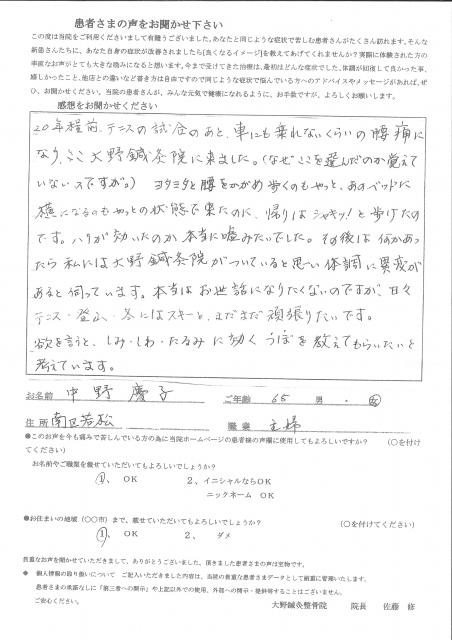 患者さまの声をお聞かせ下さい
この度は当院をご利用くださいまして有難うございました。あなたと同じような症状で苦しむ患者さんがたくさん訪れます。そんな
新患さんたちに、あなた自身の症状が改善されましたら[良くなるイメージ]を教えてあげてくれませんか？実際に体験された方の
率直なお声がとても大きな励みになると思います。今まで受けてきた治療は、最初はどんな症状でした、体調が回復して良かった事、
嬉しかったこと、他店との違いなど書き方は自由ですので同じような症状で悩んでいる方へのアドバイスやメッセージがあれば、ぜ
ひ、お聞かせください。当院の患者さんが、みんな元気で健康になれるように、お手数ですが、よろしくお願いします。
感想をお聞かせください
20年程前、テニスの試合のあと、車にも乗れないくらいの腰痛に
なり、ここ大野鍼灸院に来ました。(なぜここを選んだのか覚えて
いないんですが。) ヨタヨタと腰をかがめ歩くのもやっと、あのベットに
横になるのもやっとの状態で来たのに、帰りはシャキッ！と歩けたの
です。ハリが効いたのか本当に嘘みたいでした。その後は何かあっ
たら私には大野鍼灸院がついていると思い体調に異変が
あると伺っています。本当はお世話になりたくないのですが、日々
テニス・登山・冬にはスキーと、まだまだ頑張りたいです。
欲を言うと、しみ・しわ・たるみに効くつぼを教えてもらいたいと
考えています。
お名前 中野 慶子 ご年齢 65 男・女
住所 南区若松 職業 主婦
●このお声を今も痛みで苦しんでいる方の為に当院ホームページの患者様の声欄に使用してもよろしいですか？ (○を付け
てください)
お名前やご職業を載せていただいてもよろしいでしょうか？
1、 OK 2、イニシャルならOK
ニックネーム OK
●お住まいの地域（○○市）まで、載せていただいてもよろしいでしょうか？ (○を付けてください)
1、 OK 2、 ダメ
貴重なお声を聞かせていただきまして、ありがとうございました。頂きました患者さまの声は宝物です。
◆ 個人情報の取り扱いについて ご記入いただきました内容は、当院の貴重な患者さまデータとして厳重に管理いたします。
患者さまの承諾なしに「第三者への開示」や上記以外での使用、外部への開示・提供することはございません。
ご安心ください。
大野鍼灸整骨院 院長 佐藤 修